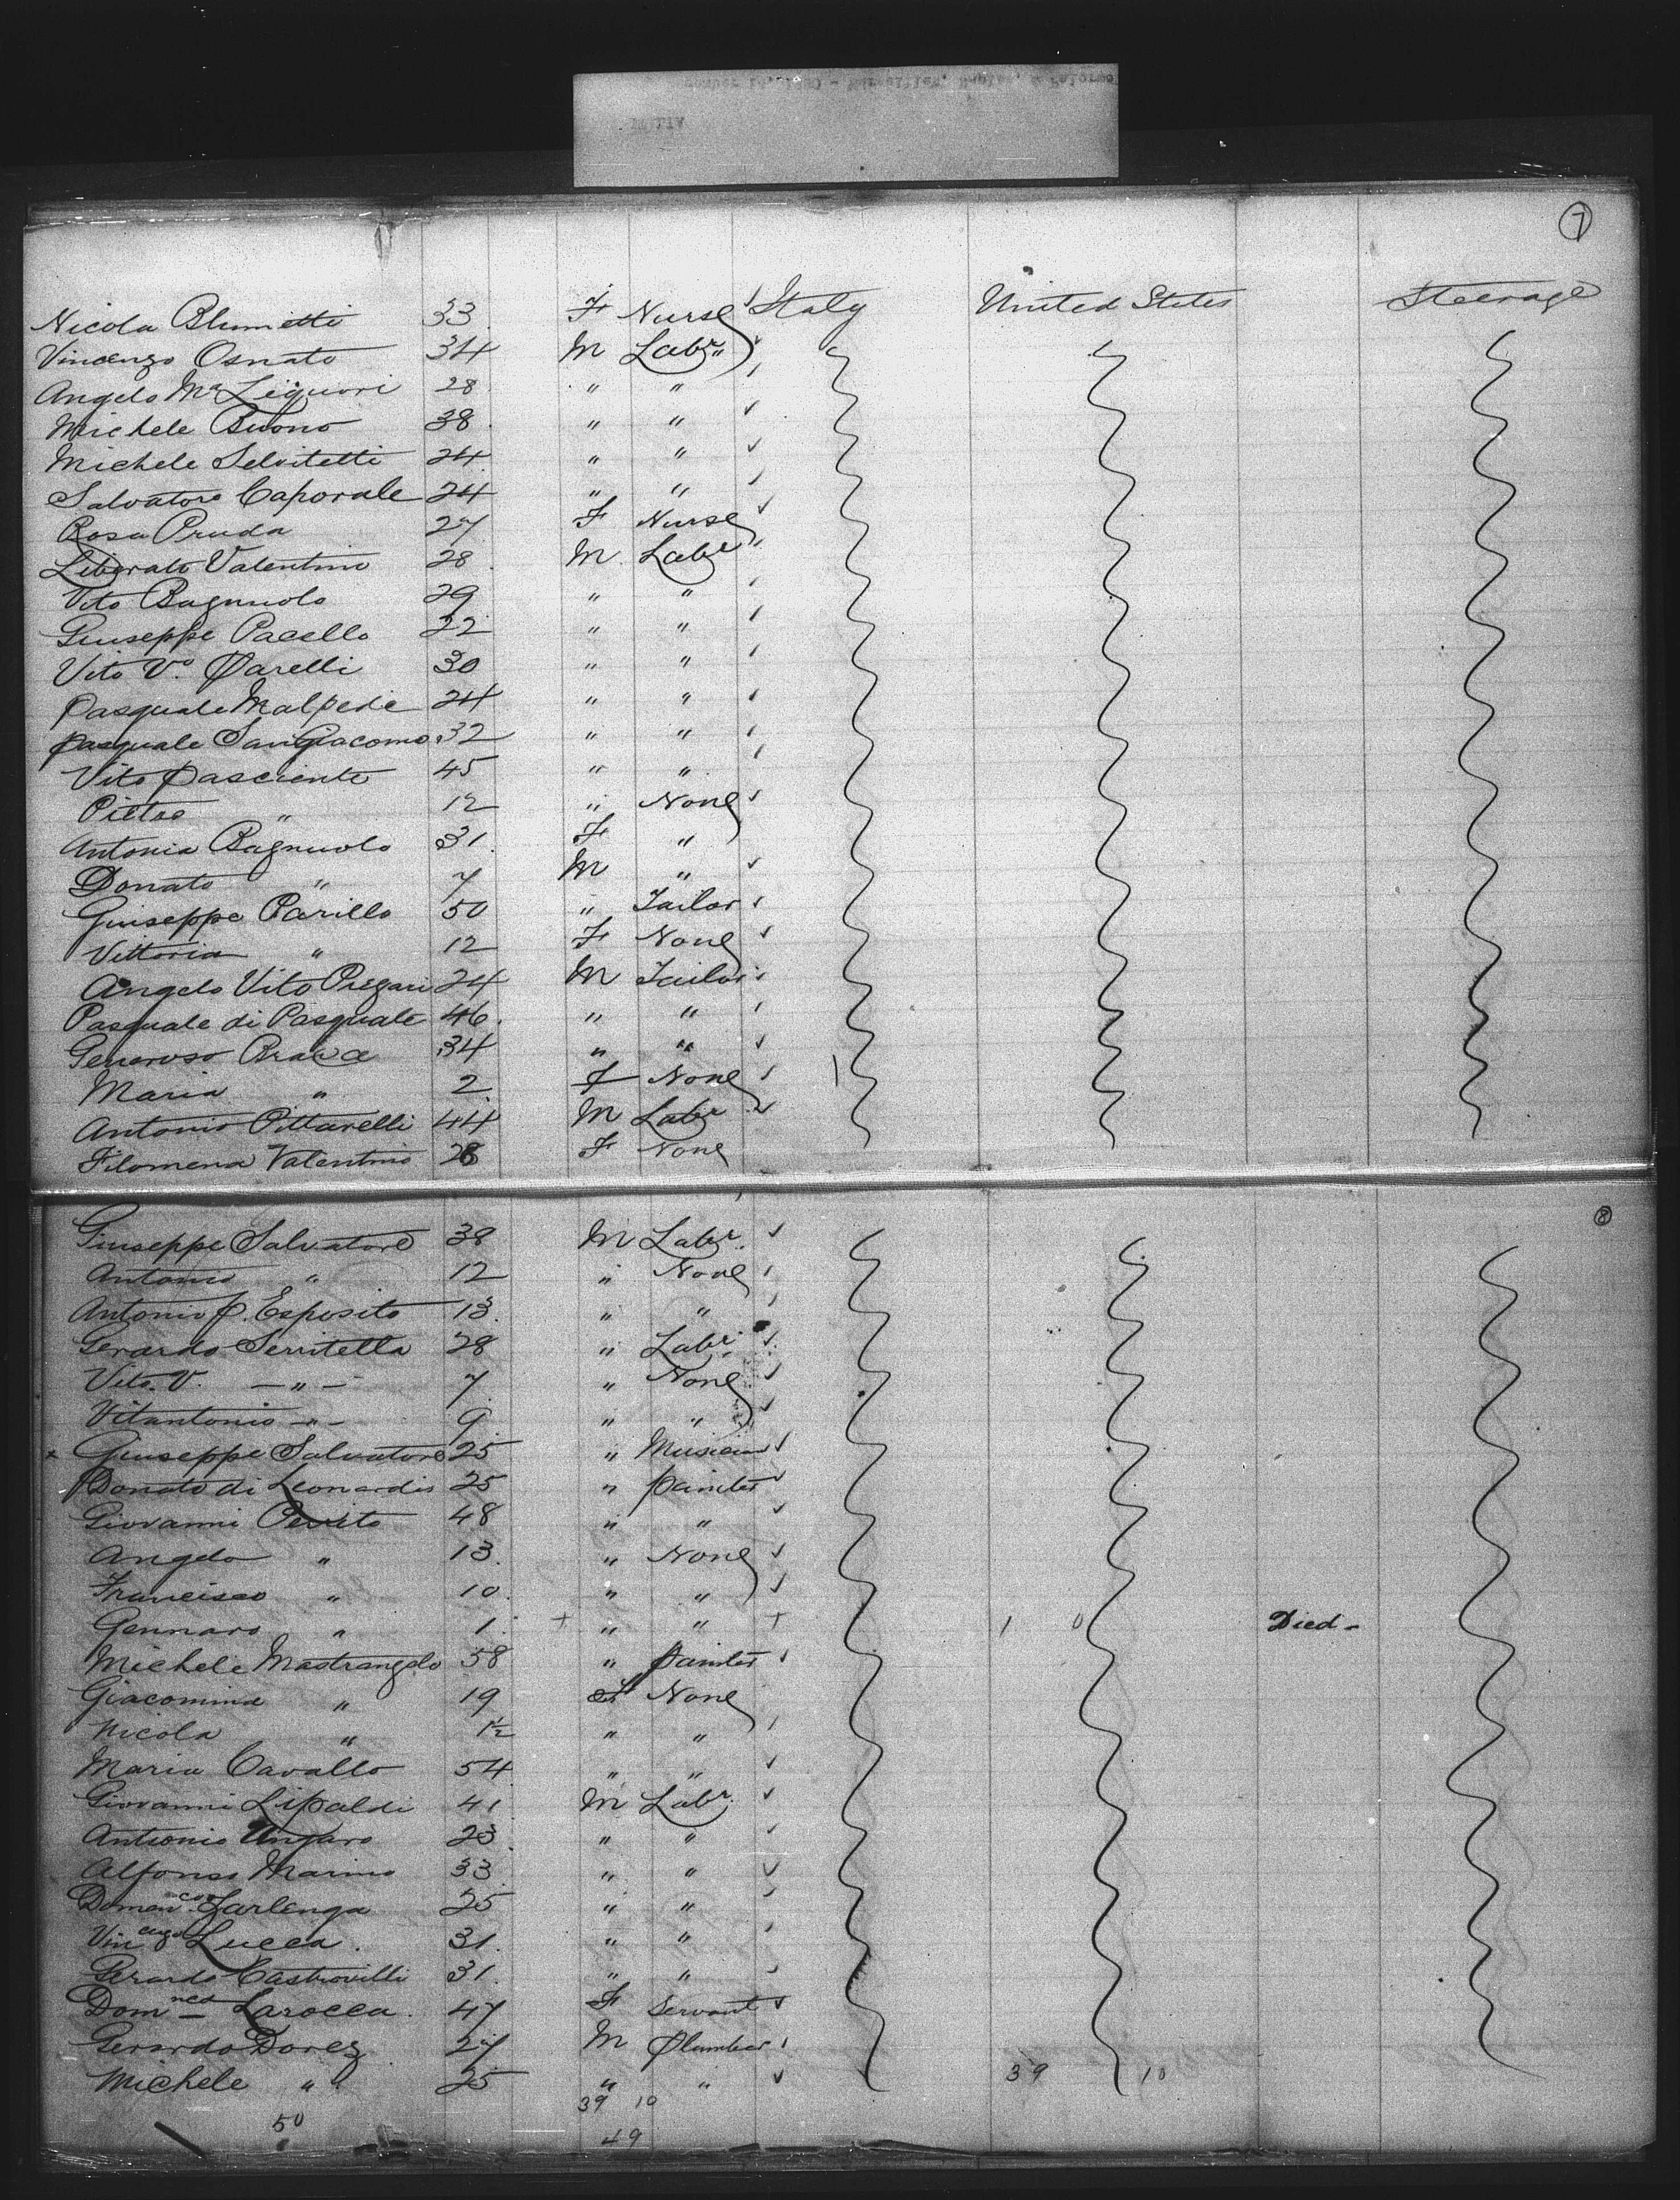 7
Nicola Blumetti 33 F Nurse Italy United States Steerage
Vincenzo Osnato 34 M Labr
Angelo Ma Liguori 28 " "
Michele Buono 38 " "
Michele Selvitetti 24 " "
Salvatore Caporale 24 " "
Rosa Pruda 27 F Nurse
Liberato Valentino 28 M Labr
Vito Bagnuolo 29 " "
Giuseppe Pacello 22 " "
Vito Vo. Parelli 30 " "
Pasquale Malpede 24 " "
Pasquale Sangiacomo 32 " "
Vito Pasciente 45 " "
Pietro " 12 " None
Antonia Bagnuolo 31 F "
Donato " 7 M "
Giuseppe Parillo 50 " Tailor
Vittoria " 12 F None
Angelo Vito Pregari 24 M Tailor
Pasquale di Pasquale 46 " "
Generoso Braca 34 " "
Maria " 2 F None
Antonio Pittarelli 44 M Labr
Filomena Valentino 28 F None
8
Giuseppe Salvatore 38 M Labr
Antonio " 12 " None
Antonio P. Esposito 13 " "
Gerardo Serritella 28 " Labr
Vito V. — " — 7 " None
Vitantonio — " — 9 " "
x Giuseppe Salvatore 25 " Musician
Donato di Leonardis 25 " Painter
Giovanni Perrito 48 " "
Angelo " 13 " None
Francisco " 10 " "
Gennaro " 1 + " " + 1 0 Died -
Michele Mastrangelo 58 " Painter
Giacomina " 19 F None
Nicola " 1½ " "
Maria Cavallo 54 " "
Giovanni Lipaldi 41 M Labr
Antonio Ungaro 23 " "
Alfonso Marino 33 " "
Domenco Zarlenga 25 " "
Vincenzo Lucca 31 " "
Gerardo Castrovilli 31 " "
Domnca Larocca 47 F Servant
Gerardo Dorez 27 M Plumber
Michele " 25 " " 39 10
39 10
50
49